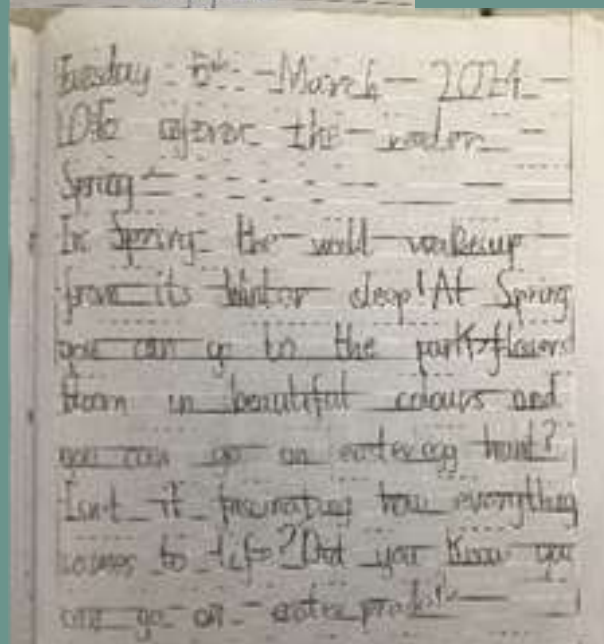 Tuesday 5th March 2024
LO to the
Spring
In Spring the world wakeup
from its Winter sleep! At Spring
you can go to the park, flowers
bloom in beautiful colours and
you can go on easter egg hunt?
Isn't it fascinating how everything
comes to life? Did you know you
can go on easter